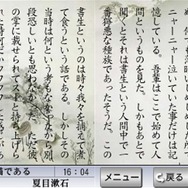 ニャーニャー泣いていた事だけは記
憶している。吾輩はここで始めて人
間というものを見た。しかもあとで
聞くとそれは書生という人間中で一
番獰悪な種族であったそうだ。この
書生というのは時々我々を捕えて煮
て食うという話である。しかしその
当時は何という考もなかったから別
段恐しいとも思わなかった。ただ彼
の掌に載せられてスーと持ち上げら
である 16:04
夏目漱石
メニュー 戻る